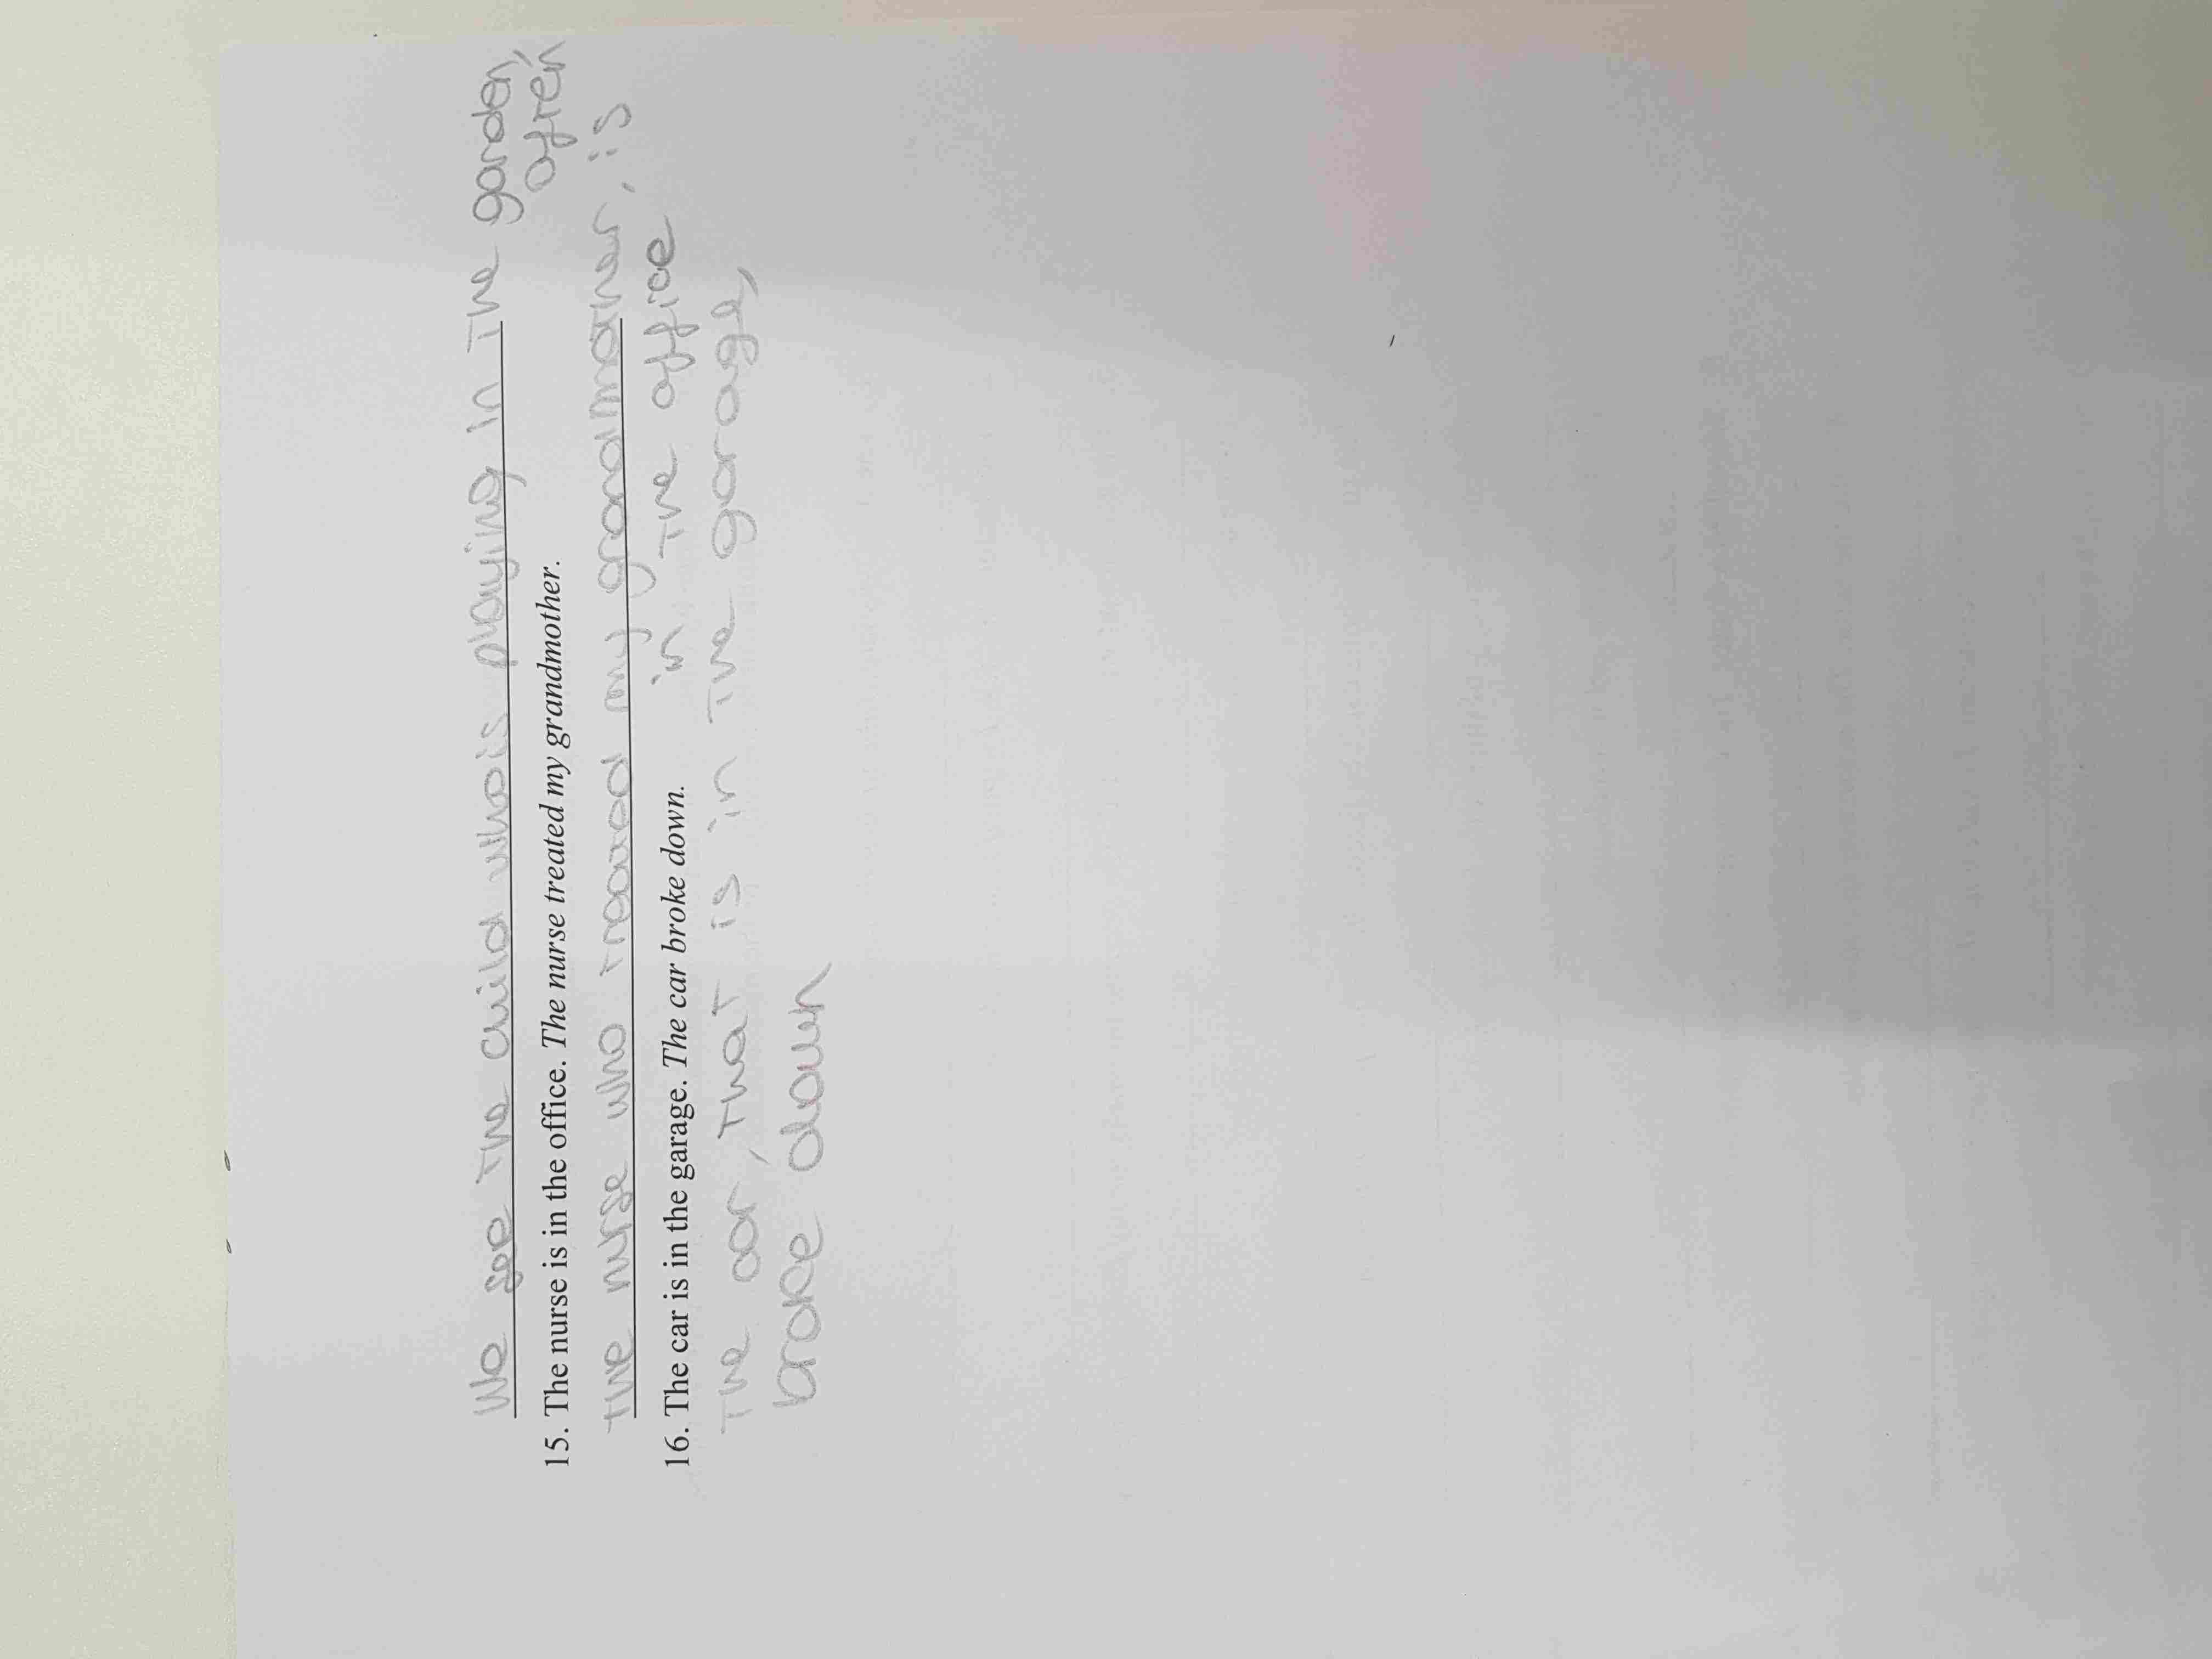 We see the child who is playing in the garden,
often
15. The nurse is in the office. The nurse treated my grandmother.
the nurse who treated my grandmother, is
in the office
16. The car is in the garage. The car broke down.
The car, that is in the garage,
broke down